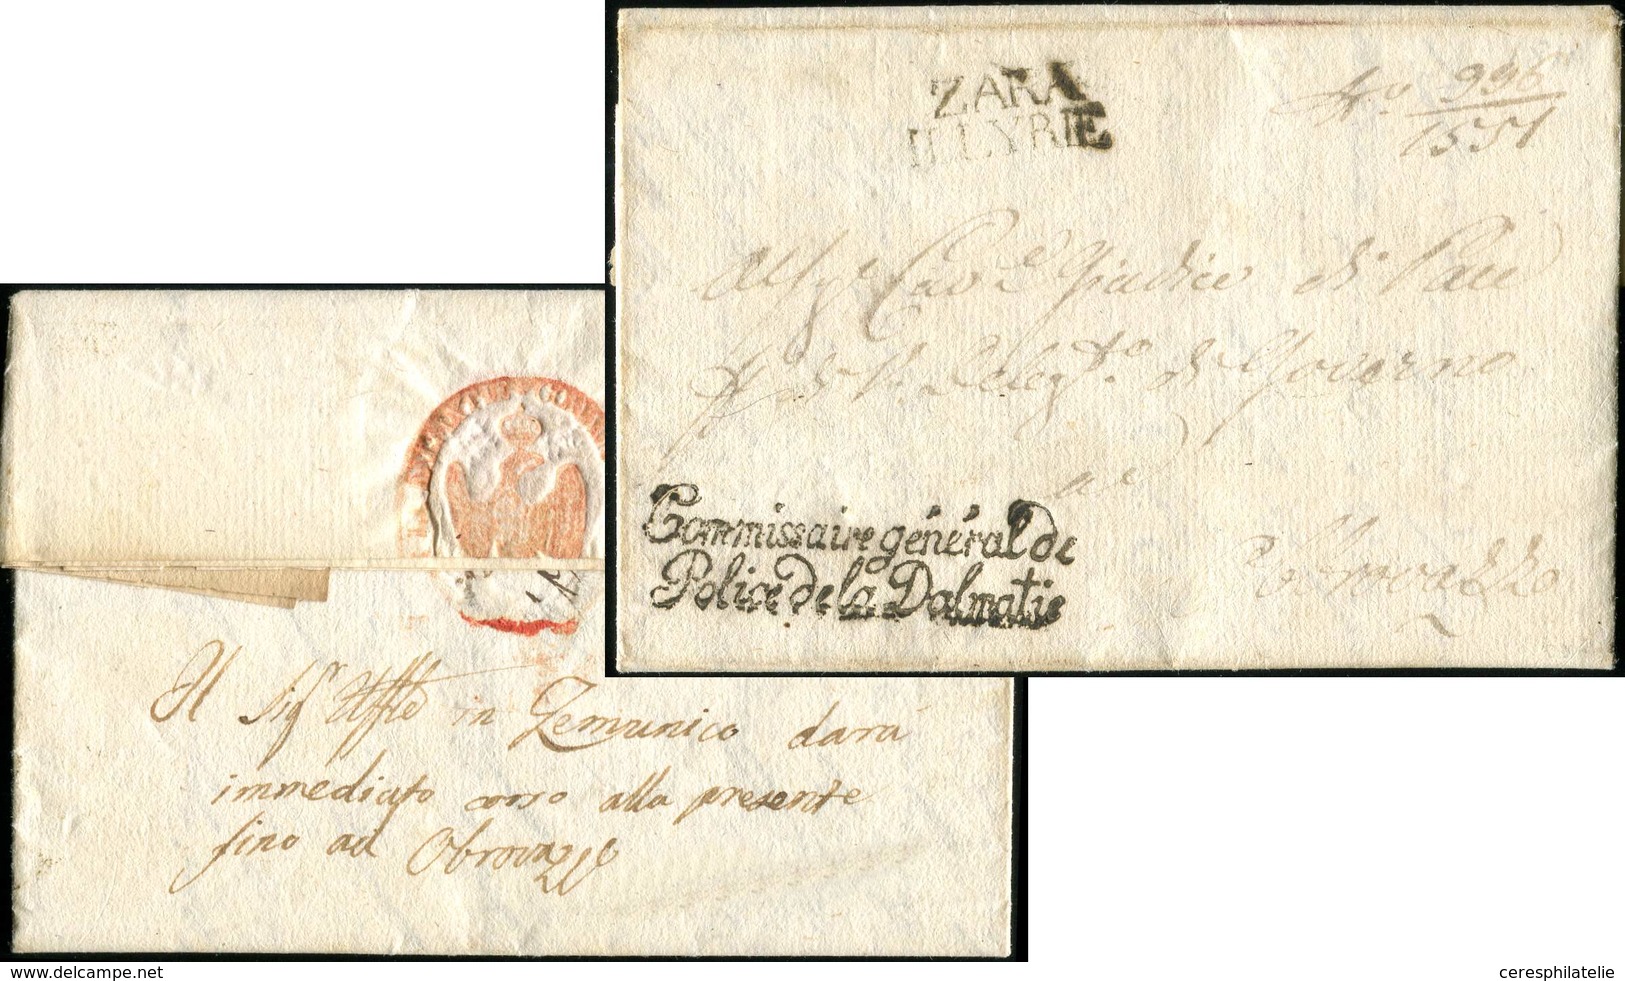 ZARA
ILLYRIE
No. 996
1551
Giudice di Pace
di Governo
ad
Obrovazzo
Commissaire général de
Police de la Dalmatie
Il Sigr Uffle in Zemunico darà
immediato corso alla presente
fino ad Obrovazzo
www.delcampe.net
ceresphilatelie